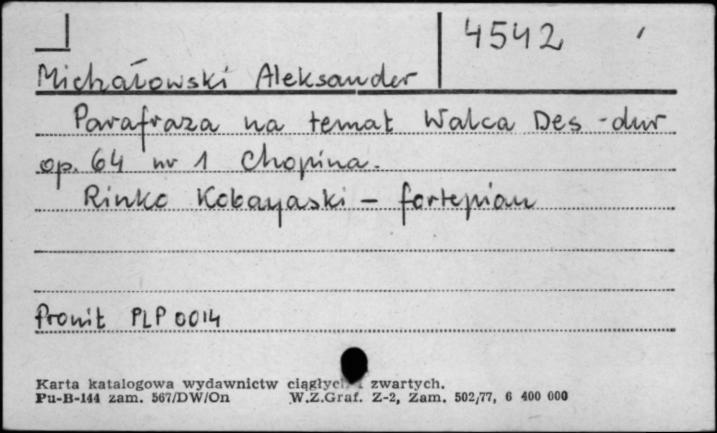 4542
Michałowski Aleksander
Parafraza na temat Walca Des-dur
op. 64 nr 1 Chopina.
Rinko Kobayaski - fortepian
Pronit PLP 0014
Karta katalogowa wydawnictw ciągłych i zwartych.
Pu-B-144 zam. 567/DW/On W.Z.Graf. Z-2, Zam. 502/77, 6 400 000